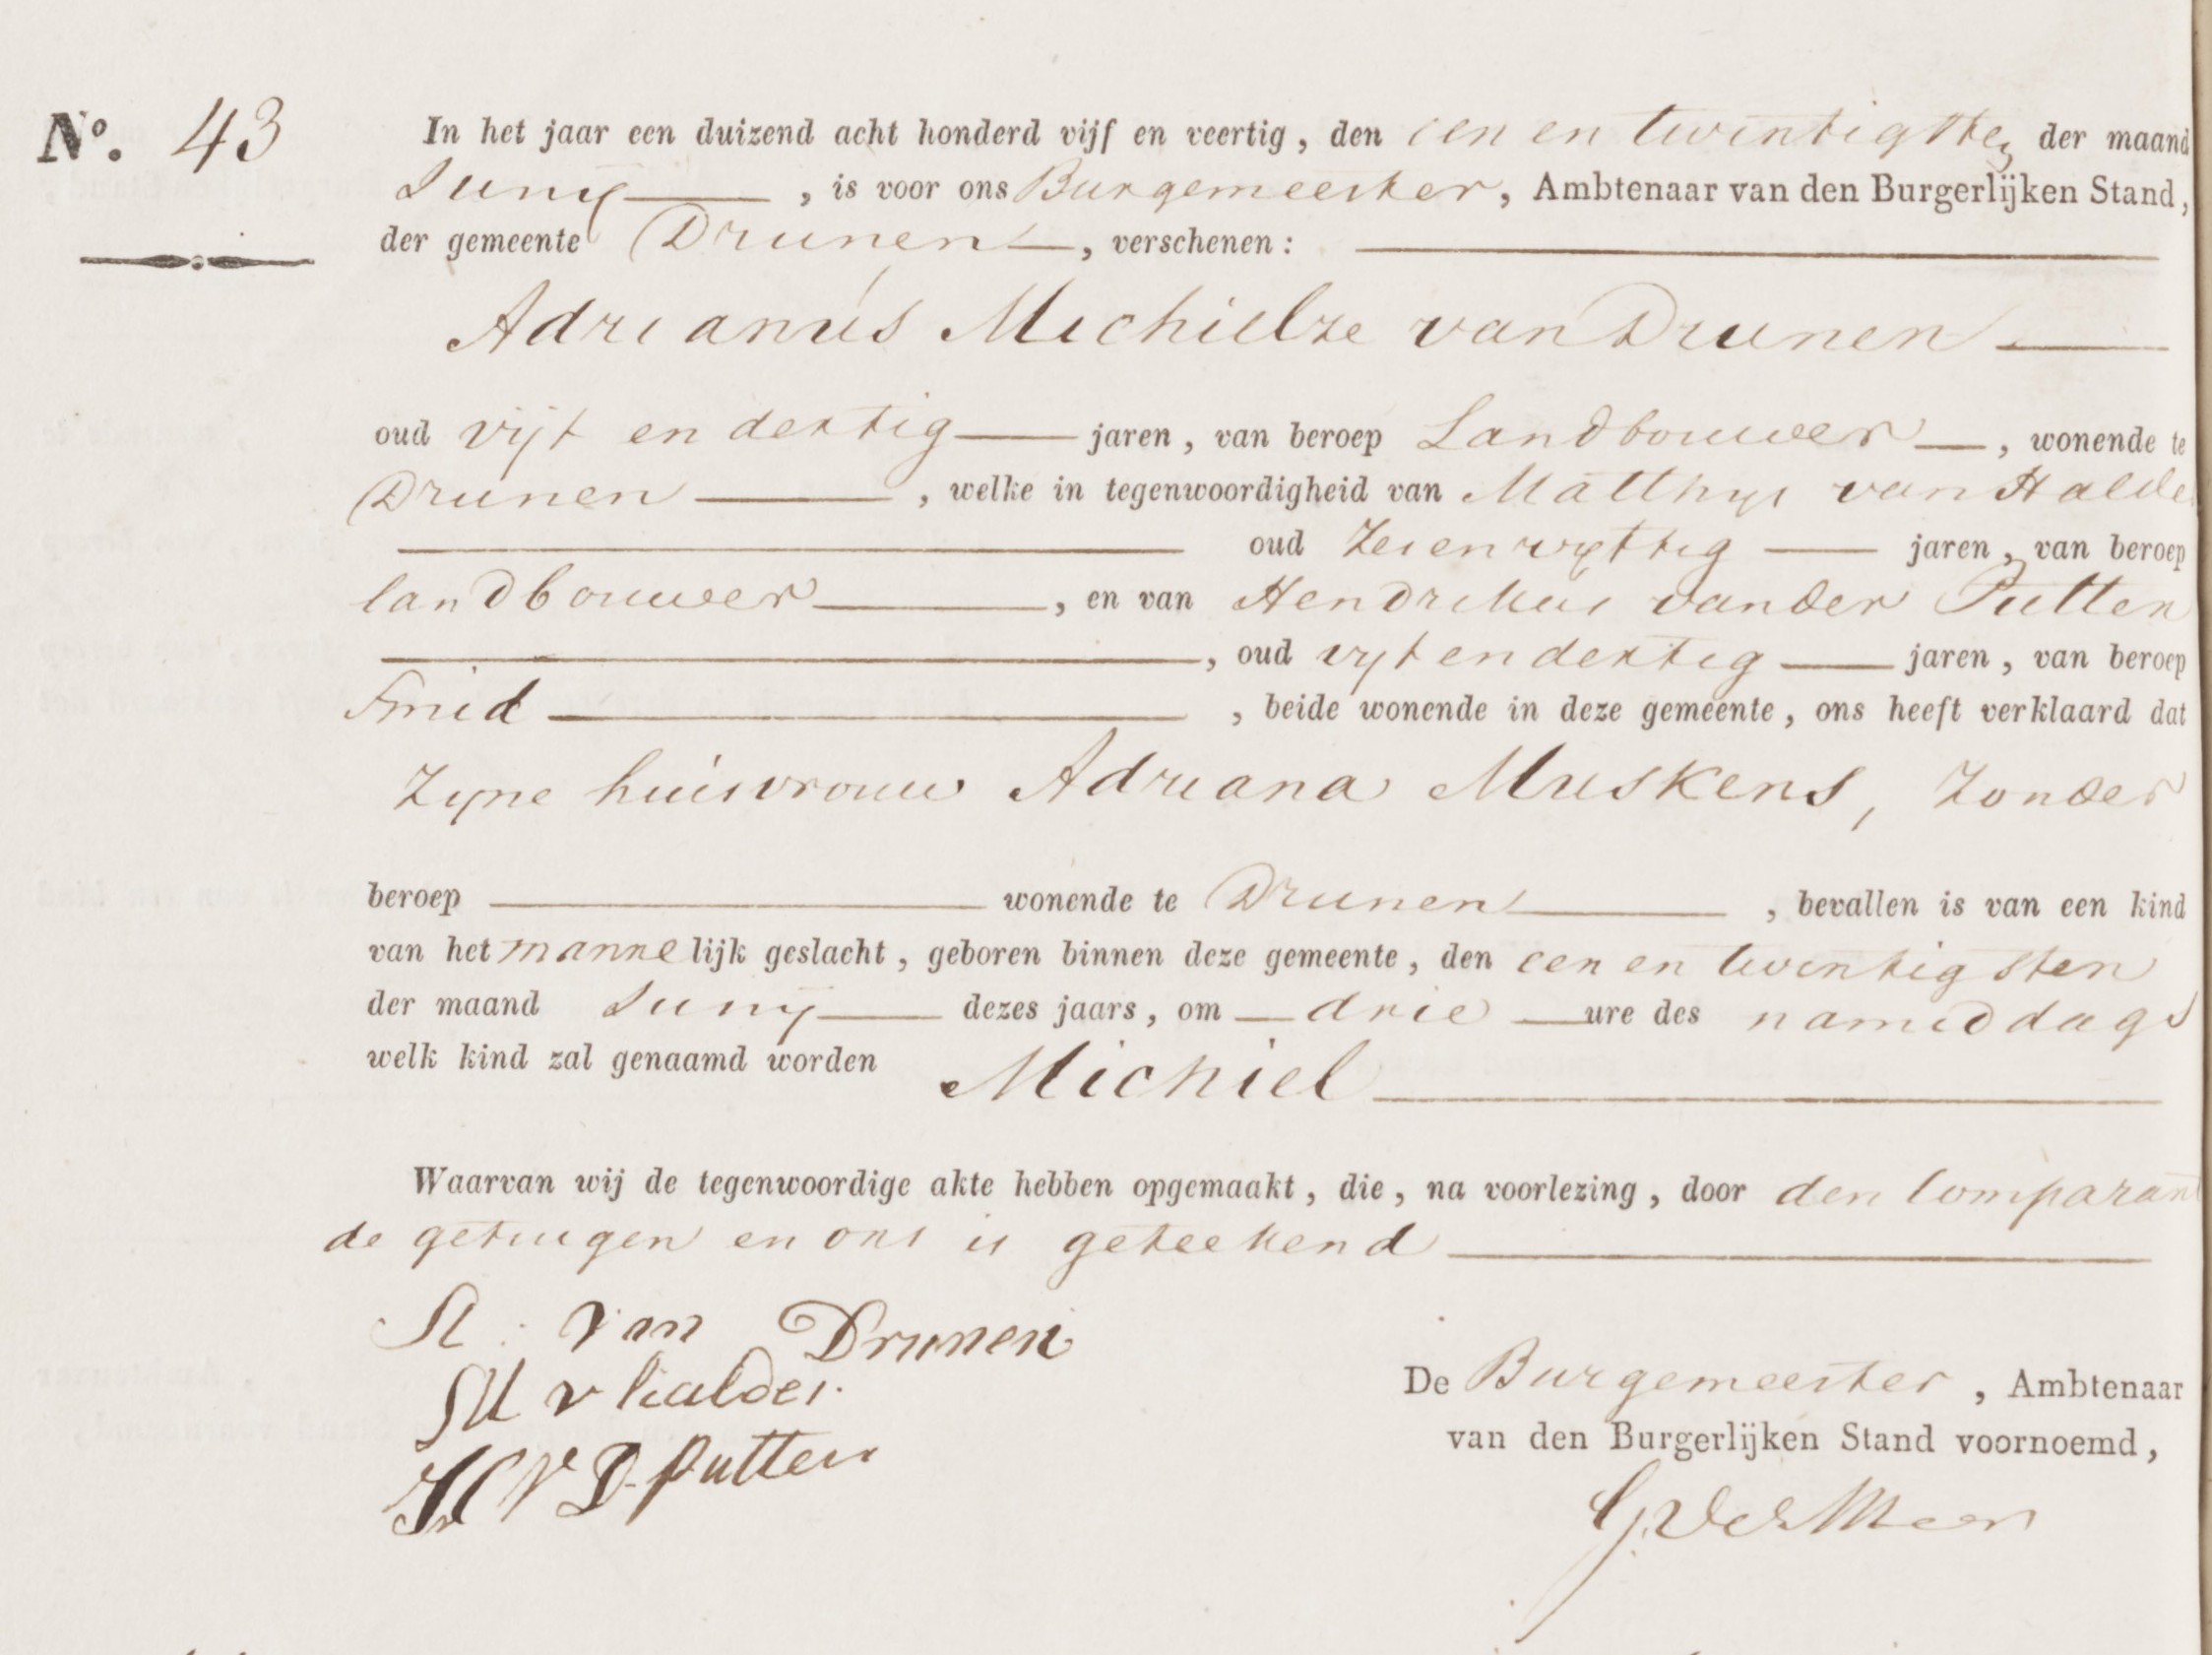 No. 43
In het jaar een duizend acht honderd vijf en veertig, den een en twintigsten der maand
Junij , is voor ons Burgemeester, Ambtenaar van den Burgerlijken Stand,
der gemeente Drunen , verschenen:
Adrianus Michielze van Drunen
oud vijf en dertig jaren, van beroep Landbouwer , wonende te
Drunen , welke in tegenwoordigheid van Matthijs van Halde
oud jaren, van beroep
landbouwer , en van Hendrikus van der Putten
, oud vijf en dertig jaren, van beroep
Smid , beide wonende in deze gemeente, ons heeft verklaard dat
Zyne huisvrouw Adriana Muskens, Zonder
beroep wonende te Drunen , bevallen is van een kind
van het mannelijk geslacht, geboren binnen deze gemeente, den een en twintigsten
der maand Junij dezes jaars, om drie ure des namiddags
welk kind zal genaamd worden Michiel
Waarvan wij de tegenwoordige akte hebben opgemaakt, die, na voorlezing, door den Comparant
de getuigen en ons is geteekend
A: van Drunen
M v halder
H V D putten
De Burgemeester, Ambtenaar
van den Burgerlijken Stand voornoemd,